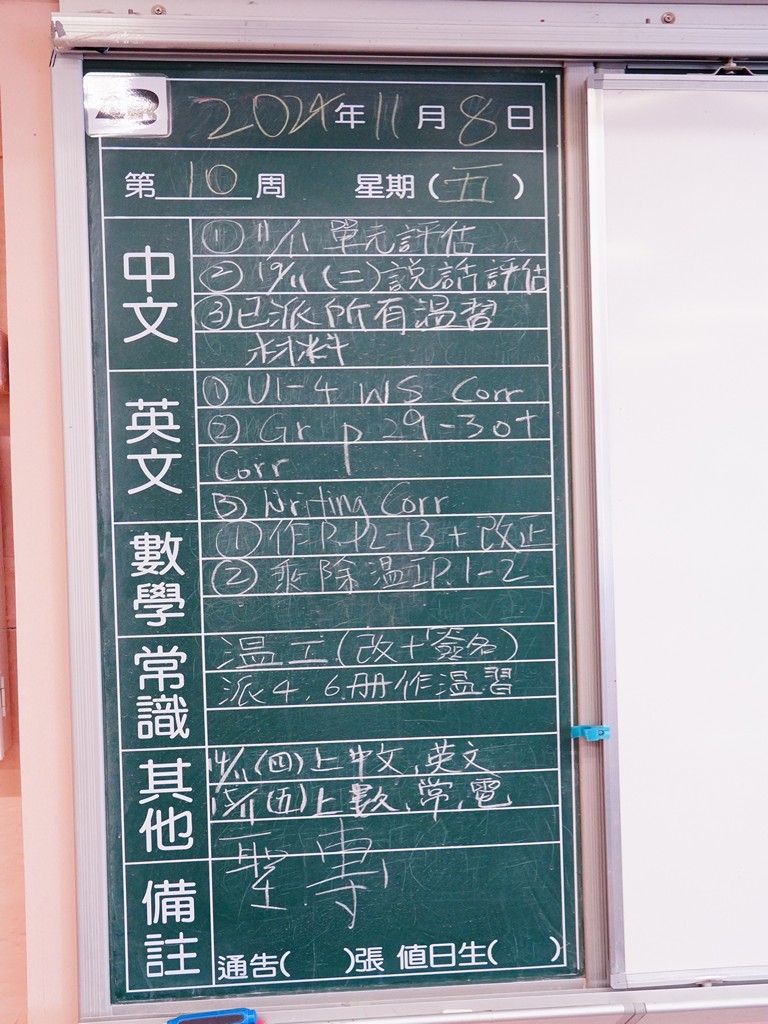 2B
2024年11月8日
第10周 星期(五)
中文
① 11/11 單元評估
② 19/11 (二) 說話評估
③ 已派所有溫習
材料
英文
① U1-4 WS Corr
② Gr p 29-30+
Corr
③ Writing Corr
數學
① 作P.12-13+改正
② 乘除溫工P.1-2
常識
溫工(改+簽名)
派4,6冊作溫習
其他
14/11(四)上中文,英文
15/11(五)上數,常,電
備註
聖專
通告( )張 值日生( )